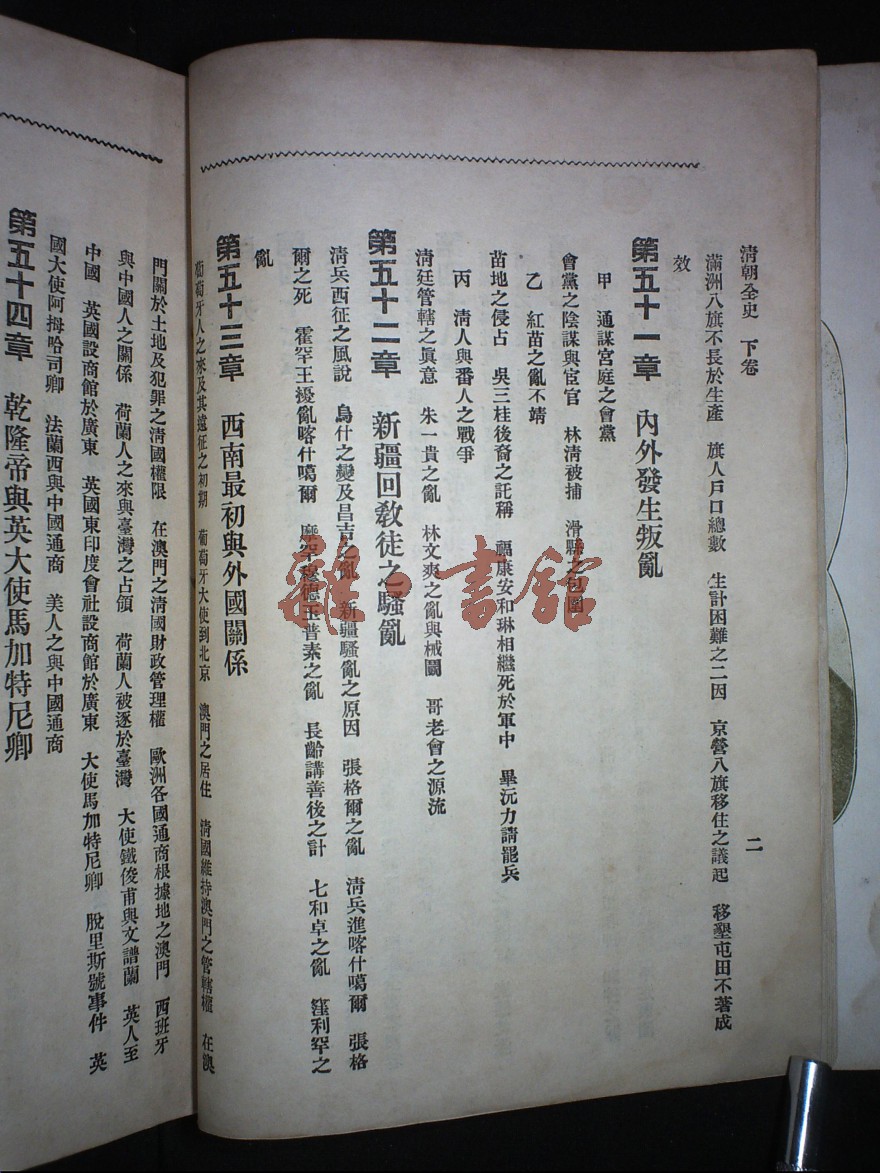 清朝全史 下卷
二
滿洲八旗不長於生產 旗人戶口總數 生計困難之二因 京營八旗移住之議起 移墾屯田不著成
效
第五十一章 內外發生叛亂
甲 通謀宮庭之會黨
會黨之陰謀與宦官 林清被捕 滑縣之包圍
乙 紅苗之亂不靖
苗地之侵占 吳三桂後裔之託稱 福康安和琳相繼死於軍中 畢沅力請罷兵
丙 清人與番人之戰爭
清廷管轄之眞意 朱一貴之亂 林文爽之亂與械鬬 哥老會之源流
第五十二章 新疆回敎徒之騷亂
清兵西征之風說 烏什之變及昌吉之亂 新疆騷亂之原因 張格爾之亂 清兵進喀什噶爾 張格
爾之死 霍罕王擾亂喀什噶爾 摩罕穆德玉普素之亂 長齡講善後之計 七和卓之亂 窪利罕之
亂
第五十三章 西南最初與外國關係
葡萄牙人之來及其遠征之初期 葡萄牙大使到北京 澳門之居住 清國維持澳門之管轄權 在澳
門關於土地及犯罪之清國權限 在澳門之清國財政管理權 歐洲各國通商根據地之澳門 西班牙
與中國人之關係 荷蘭人之來與臺灣之占領 荷蘭人被逐於臺灣 大使鐵俊甫與文譜蘭 英人至
中國 英國設商館於廣東 英國東印度會社設商館於廣東 大使馬加特尼卿 脫里斯號事件 英
國大使阿拇哈司卿 法蘭西與中國通商 美人之與中國通商
第五十四章 乾隆帝與英大使馬加特尼卿
雜·書館